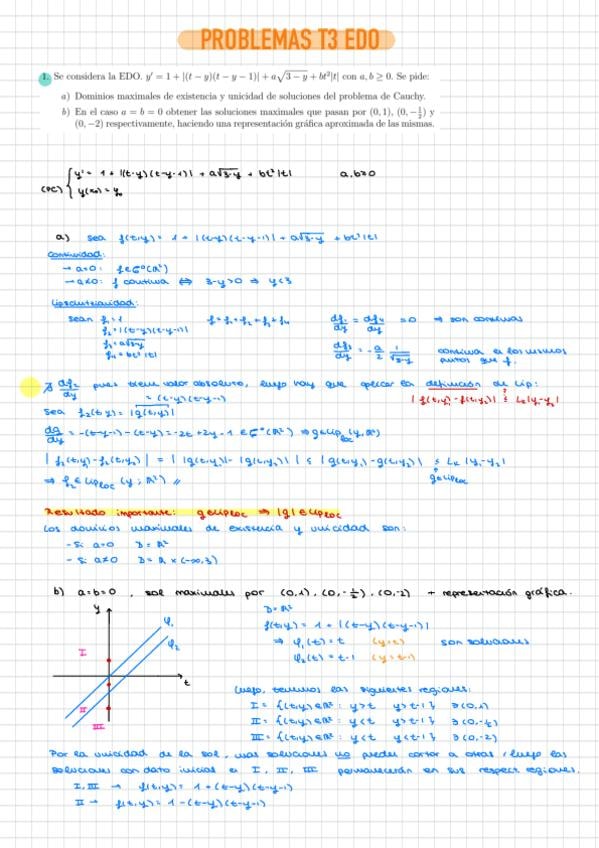 PROBLEMAS T3 EDO
1. Se considera la EDO. y' = 1 + |(t − y)(t − y − 1)| + a√(3 − y) + bt²|t| con a, b ≥ 0. Se pide:
a) Dominios maximales de existencia y unicidad de soluciones del problema de Cauchy.
b) En el caso a = b = 0 obtener las soluciones maximales que pasan por (0, 1), (0, −1/2) y
(0, −2) respectivamente, haciendo una representación gráfica aproximada de las mismas.
(PC) { y' = 1 + |(t-y)(t-y-1)| + a√(3-y) + bt²|t| a, b ≥ 0
y(x₀) = y₀
a) Sea f(t,y) = 1 + |(t-y)(t-y-1)| + a√(3-y) + bt²|t|
Continuidad:
→ a=0: f ∈ C⁰(ℝ²)
→ a≠0: f continua ⇔ 3-y>0 ⇒ y<3
Lipschitzianidad:
Sean f₁ = 1 f = f₁+f₂+f₃+f₄ df₁/dy = df₄/dy = 0 → son continuas
f₂ = |(t-y)(t-y-1)|
f₃ = a√(3-y) df₃/dy = -a/2 1/√(3-y) continua en los mismos
f₄ = bt²|t| puntos que f.
∄ df₂/dy pues tiene valor absoluto, luego hay que aplicar la definición de Lip:
= (t-y)(t-y-1) |f(t,y₁) - f(t,y₂)| ≤ Lₖ|y₁-y₂|
Sea f₂(t,y) = |g(t,y)|
dg/dy = -(t-y-1)-(t-y) = -2t + 2y + 1 ∈ C⁰(ℝ²) ⇒ g ∈ Lip loc (y, ℝ²)
|f₂(t,y₁) - f₂(t,y₂)| = ||g(t,y₁)| - |g(t,y₂)|| ≤ |g(t,y₁) - g(t,y₂)| ≤ Lₖ|y₁-y₂|
⇒ f₂ ∈ Lip loc (y; ℝ²) // g ∈ Lip loc
Resultado importante: g ∈ Lip loc ⇒ |g| ∈ Lip loc
Los dominios maximales de existencia y unicidad son:
- Si a=0 D = ℝ²
- Si a≠0 D = ℝ × (-∞,3)
b) a=b=0, sol maximales por (0,1), (0,-1/2), (0,-2) + representación gráfica.
D = ℝ²
y φ₁ f(t,y) = 1 + |(t-y)(t-y-1)|
φ₂ ⇒ φ₁(t) = t (y=t) son soluciones
I φ₂(t) = t-1 (y=t-1)
t
Luego, tenemos las siguientes regiones:
II I = {(t,y) ∈ ℝ² : y>t y>t-1} ∋ (0,1)
II = {(t,y) ∈ ℝ² : y<t y>t-1} ∋ (0,-1/2)
III III = {(t,y) ∈ ℝ² : y<t y<t-1} ∋ (0,-2)
Por la unicidad de la sol, unas soluciones no pueden cortar a otras, luego las
soluciones con dato inicial en I, II, III permanecerán en sus respect. regiones.
I, III → f(t,y) = 1 + (t-y)(t-y-1)
II → f(t,y) = 1 - (t-y)(t-y-1)